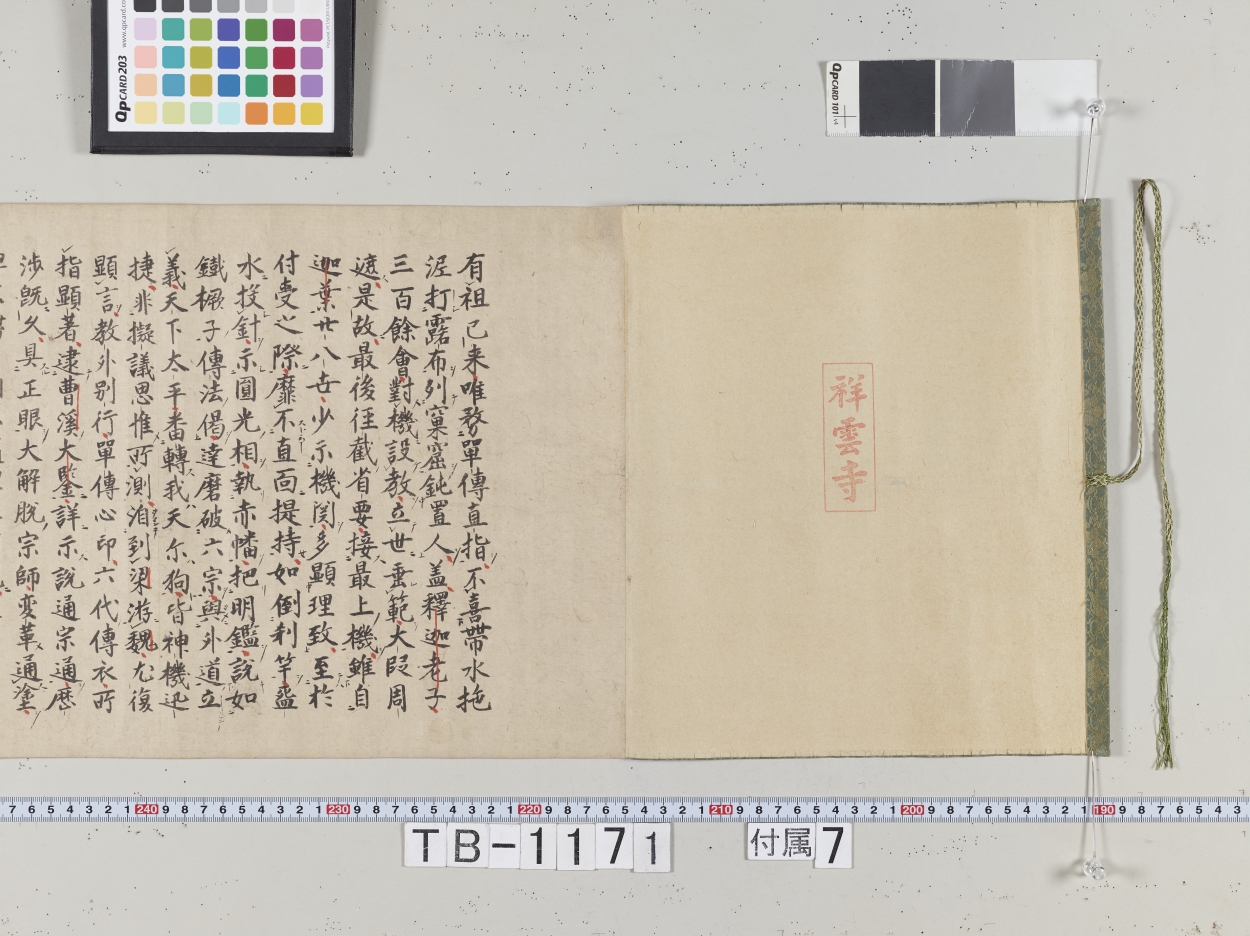 有祖已来唯務單傳直指不喜帶水拖
泥打露布列窠窟鈍置人盖釋迦老子
三百餘會對機設教立世垂範大段周
遮是故最後徑截省要接最上機雖自
迦葉廿八世少示機関多顯理致至於
付受之際靡不直面提持如倒刹竿盋
水投針示圓光相執赤幡把明鑑說如
鐵橛子傳法偈達磨破六宗與外道立
義天下太平番轉我天尓狗皆神機迅
捷非擬議思惟所測洎到梁游魏尤復
顯言教外别行單傳心印六代傳衣所
指顯著逮曹溪大鑒詳示說通宗通歷
涉既久具正眼大解脱宗師変革通塗
祥雲寺
QpCARD 203
www.qpcard.com
QpCARD 101 v4
7 6 5 4 3 2 1 240 9 8 7 6 5 4 3 2 1 230 9 8 7 6 5 4 3 2 1 220 9 8 7 6 5 4 3 2 1 210 9 8 7 6 5 4 3 2 1 200 9 8 7 6 5 4 3 2 1 190 9 8 7 6 5 4 3
TB-1171
付属7